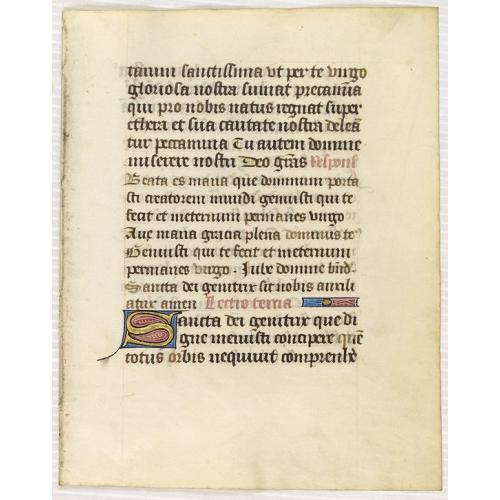 tarum sanctissima vt per te virgo
gloriosa nostra sumat precamina
qui pro nobis natus regnat super
ethera et sua caritate nostra deleā
tur peccamina Tu autem domine
miserere nostri Deo grās Respons
Beata es maria que dominum porta
sti creatorem mundi genuisti qui te
fecit et ineternum permanes virgo
Aue maria gracia plena dominus te
Genuisti qui te fecit et ineternum
permanes virgo. Iube domne bn̄d.
Sancta dei genitrix sit nobis auxili
atrix amen Lectio tercia
Sancta dei genitrix que di
gne meruisti concipere quē
totus orbis nequiuit comprenhē